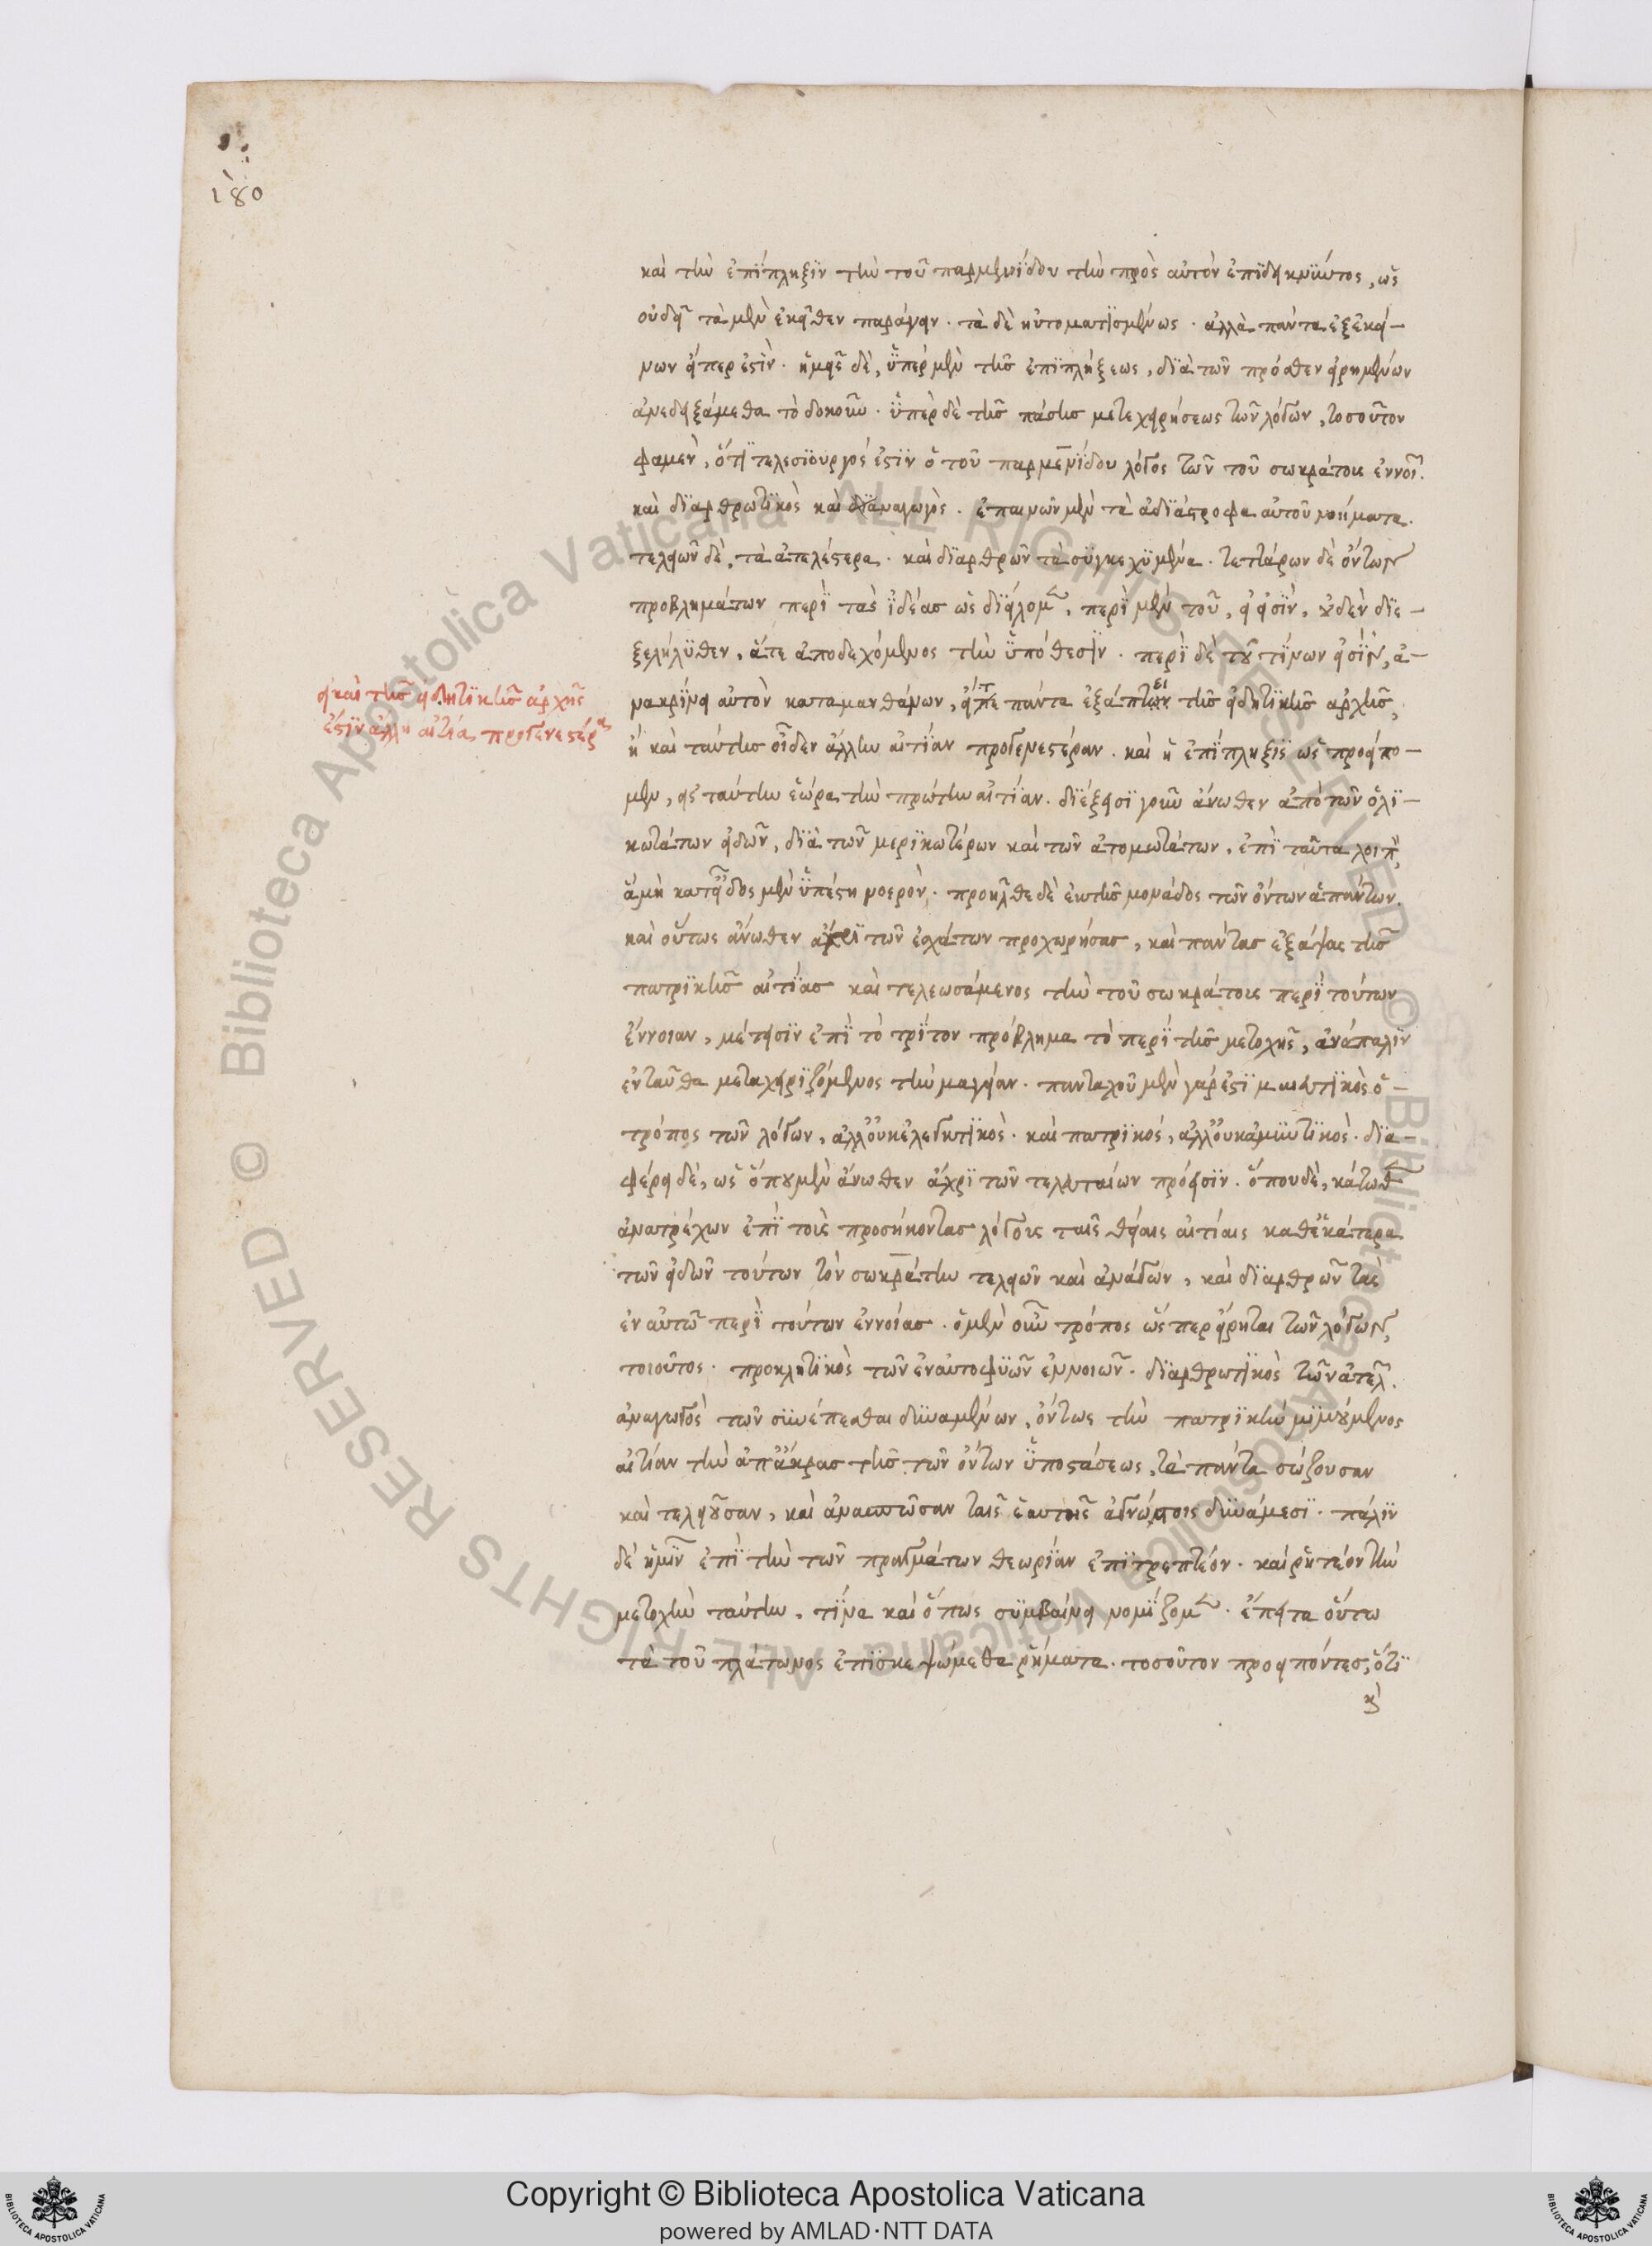 180
καὶ τὴν ἐπίπληξιν τὴν τοῦ παρμενίδου τὴν πρὸς αὐτὸν ἐπιδεικνῦντος, ὡς
οὐ δεῖ τὰ μὲν ἐκεῖθεν παράγειν. τὰ δὲ ηὐτοματισμένως. ἀλλὰ πάντα ἐξ ἐκεί-
νων ἅπερ ἐστίν. ἡμεῖς δὲ, ὑπὲρ μὲν τῆς ἐπιπλήξεως, διὰ τῶν πρόσθεν εἰρημένων
ἀνεδειξάμεθα τὸ δοκοῦν. ὑπὲρ δὲ τῆς πάσης μεταχειρήσεως τῶν λόγων, τοσοῦτον
φαμὲν, ὅτι τελεσιουργός ἐστιν ὁ τοῦ παρμενίδου λόγος τῶν τοῦ σωκράτους ἐννοι.
καὶ διαρθρωτικὸς καὶ ἀναγωγὸς. ἐπαινῶν μὲν τὰ ἀδιάστροφα αὐτοῦ νοήματα.
τελειῶν δὲ, τὰ ἀτελέστερα. καὶ διαρθρῶν τὰ συγκεχυμένα. τεττάρων δὲ ὄντων
προβλημάτων περὶ τὰς ἰδέας ὡς διείλομεν, περὶ μὲν τοῦ, εἰ εἰσὶν, οὐδὲν διε-
ξελήλυθεν, ἅτε ἀποδεχόμενος τὴν ὑπόθεσιν. περὶ δὲ τοῦ τίνων εἰσὶν, ἀ-
νακρίνει αὐτὸν καταμανθάνων, εἴτε πάντα ἐξάπτει τῆς εἰδητικῆς ἀρχῆς,
ἢ καὶ ταύτης οἶδεν ἄλλην αἰτίαν προγενεστέραν. καὶ ἡ ἐπίπληξις ὡς προείπο-
μεν, εἰς ταύτην ἑώρα τὴν πρώτην αἰτίαν. διέξεισι γοῦν ἄνωθεν ἀπὸ τῶν ὁλι-
κωτάτων εἰδῶν, διὰ τῶν μερικωτέρων καὶ τῶν ἀτομωτάτων, ἐπὶ ταῦτα λοιπὸν,
ἃ μὴ κατ' εἶδος μὲν ὑπέστη νοερὸν. προῆλθε δὲ ἐκ τῆς μονάδος τῶν ὄντων ἁπάντων.
καὶ οὕτως ἄνωθεν ἄχρι τῶν ἐσχάτων προχωρήσας, καὶ πάντας ἐξάψας τῆς
πατρικῆς αἰτίας καὶ τελεωσάμενος τὴν τοῦ σωκράτους περὶ τούτων
ἔννοιαν, μέτεισιν ἐπὶ τὸ τρίτον πρόβλημα τὸ περὶ τῆς μετοχῆς, ἀνάπαλιν
ἐνταῦθα μεταχειριζόμενος τὴν μαγείαν. πανταχοῦ μὲν γάρ ἐστι μαιευτικὸς ὁ
τρόπος τῶν λόγων, ἀλλ' οὐκ ἐλεγκτικὸς. καὶ πατρικός, ἀλλ' οὐκ ἀμυντικὸς. δια-
φέρει δὲ, ὡς ὅπου μὲν ἄνωθεν ἄχρι τῶν τελευταίων πρόεισιν. ὅπου δὲ, κάτωθεν
ἀνατρέχων ἐπὶ τοὺς προσήκοντας λόγους ταῖς θείαις αἰτίαις καθ' ἑκάτερα
τῶν εἰδῶν τούτων τὸν σωκράτην τελειῶν καὶ ἀνάγων, καὶ διαρθρῶν τὰς
ἐν αὐτῷ περὶ τούτων ἐννοίας. ὁ μὲν οὖν τρόπος ὥσπερ εἴρηται τῶν λόγων,
τοιοῦτος. προκλητικὸς τῶν ἐν αὐτοφυῶν ἐννοιῶν. διαρθρωτικὸς τῶν ἀτελ.
ἀναγωγὸς τῶν συνέπεσθαι δυναμένων, ὄντως τὴν πατρικὴν μιμούμενος
αἰτίαν τὴν ἀπ' ἄκρας τῆς τῶν ὄντων ὑποστάσεως, τὰ πάντα σώζουσαν
καὶ τελειοῦσαν, καὶ ἀνασπῶσαν ταῖς ἑαυτῆς ἀγνώστοις δυνάμεσι. πάλιν
δὲ ἡμῖν ἐπὶ τὴν τῶν πραγμάτων θεωρίαν ἐπιτρεπτέον. καὶ ῥητέον τὴν
μετοχὴν ταύτην, τίνα καὶ ὅπως συμβαίνει νομίζομεν. ἔπειτα οὕτω
τὰ τοῦ πλάτωνος ἐπισκεψώμεθα ῥήματα. τοσοῦτον προειπόντες, ὅτι
καὶ
εἰ καὶ τῆς εἰδητικῆς ἀρχῆς
ἐστὶν ἄλλη αἰτία προγενεστέρα
Copyright © Biblioteca Apostolica Vaticana
powered by AMLAD·NTT DATA
© Biblioteca Apostolica Vaticana ALL RIGHTS RESERVED © Biblioteca Apostolica Vaticana ALL RIGHTS RESERVED
BIBLIOTECA APOSTOLICA VATICANA
BIBLIOTECA APOSTOLICA VATICANA